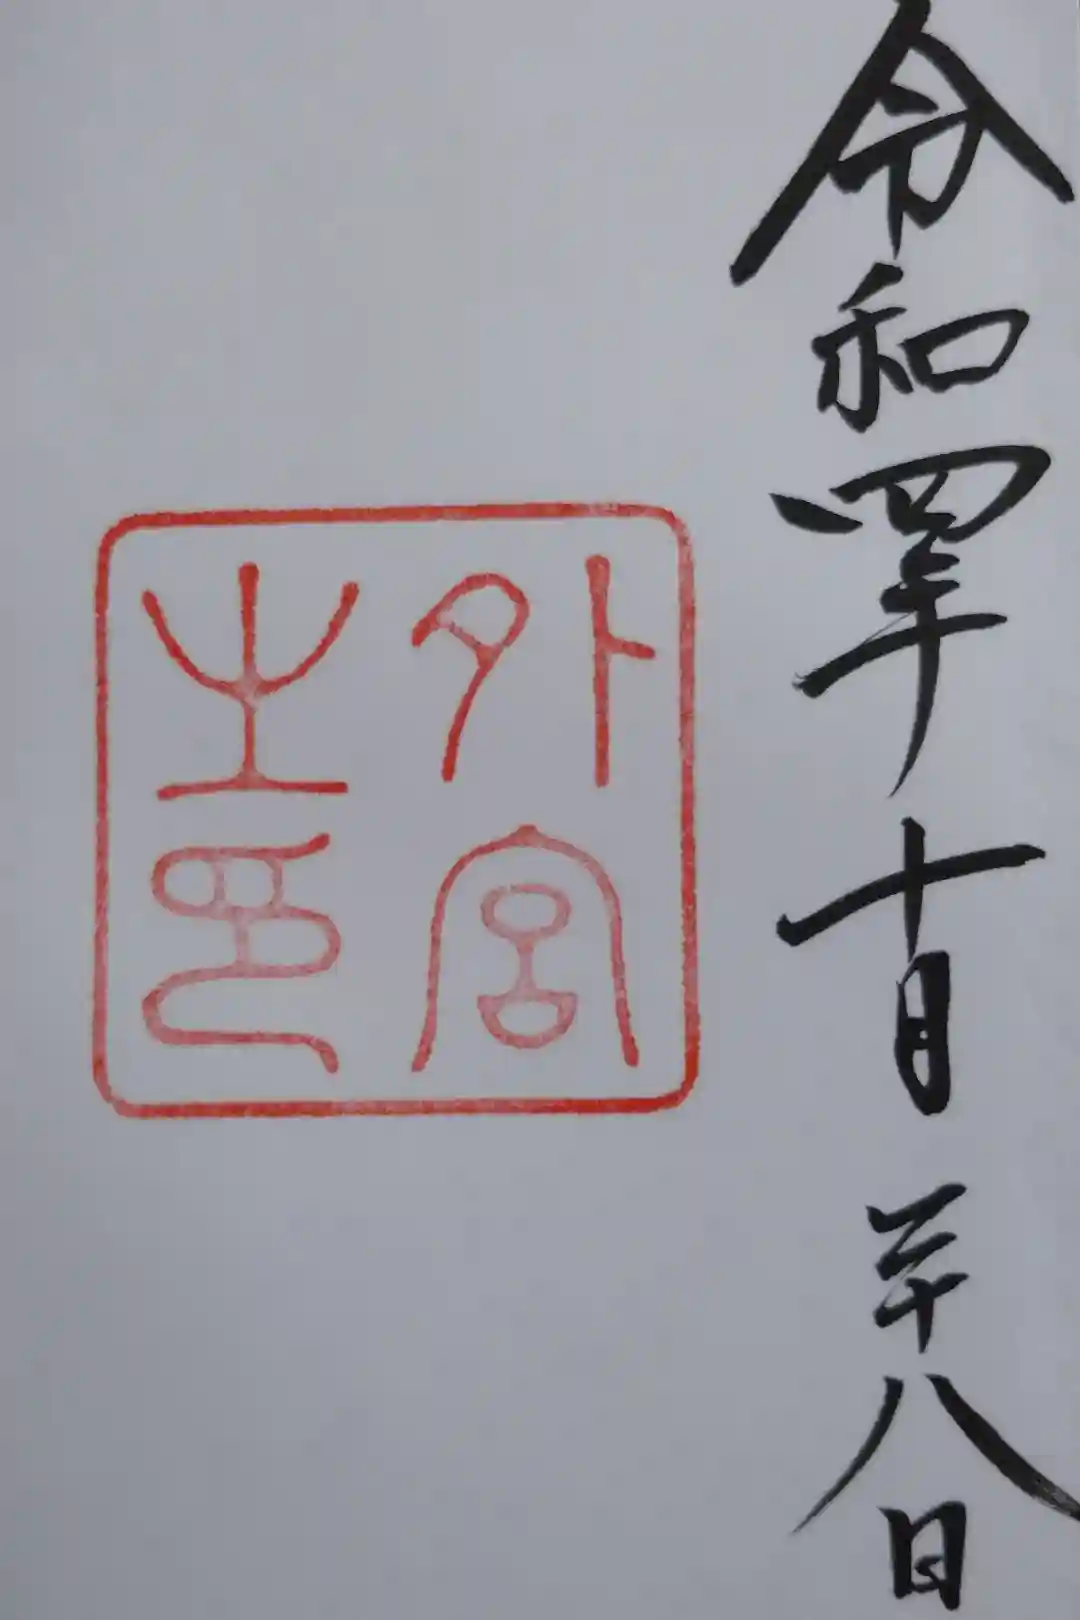 令和四年十月二十八日
外宮之印